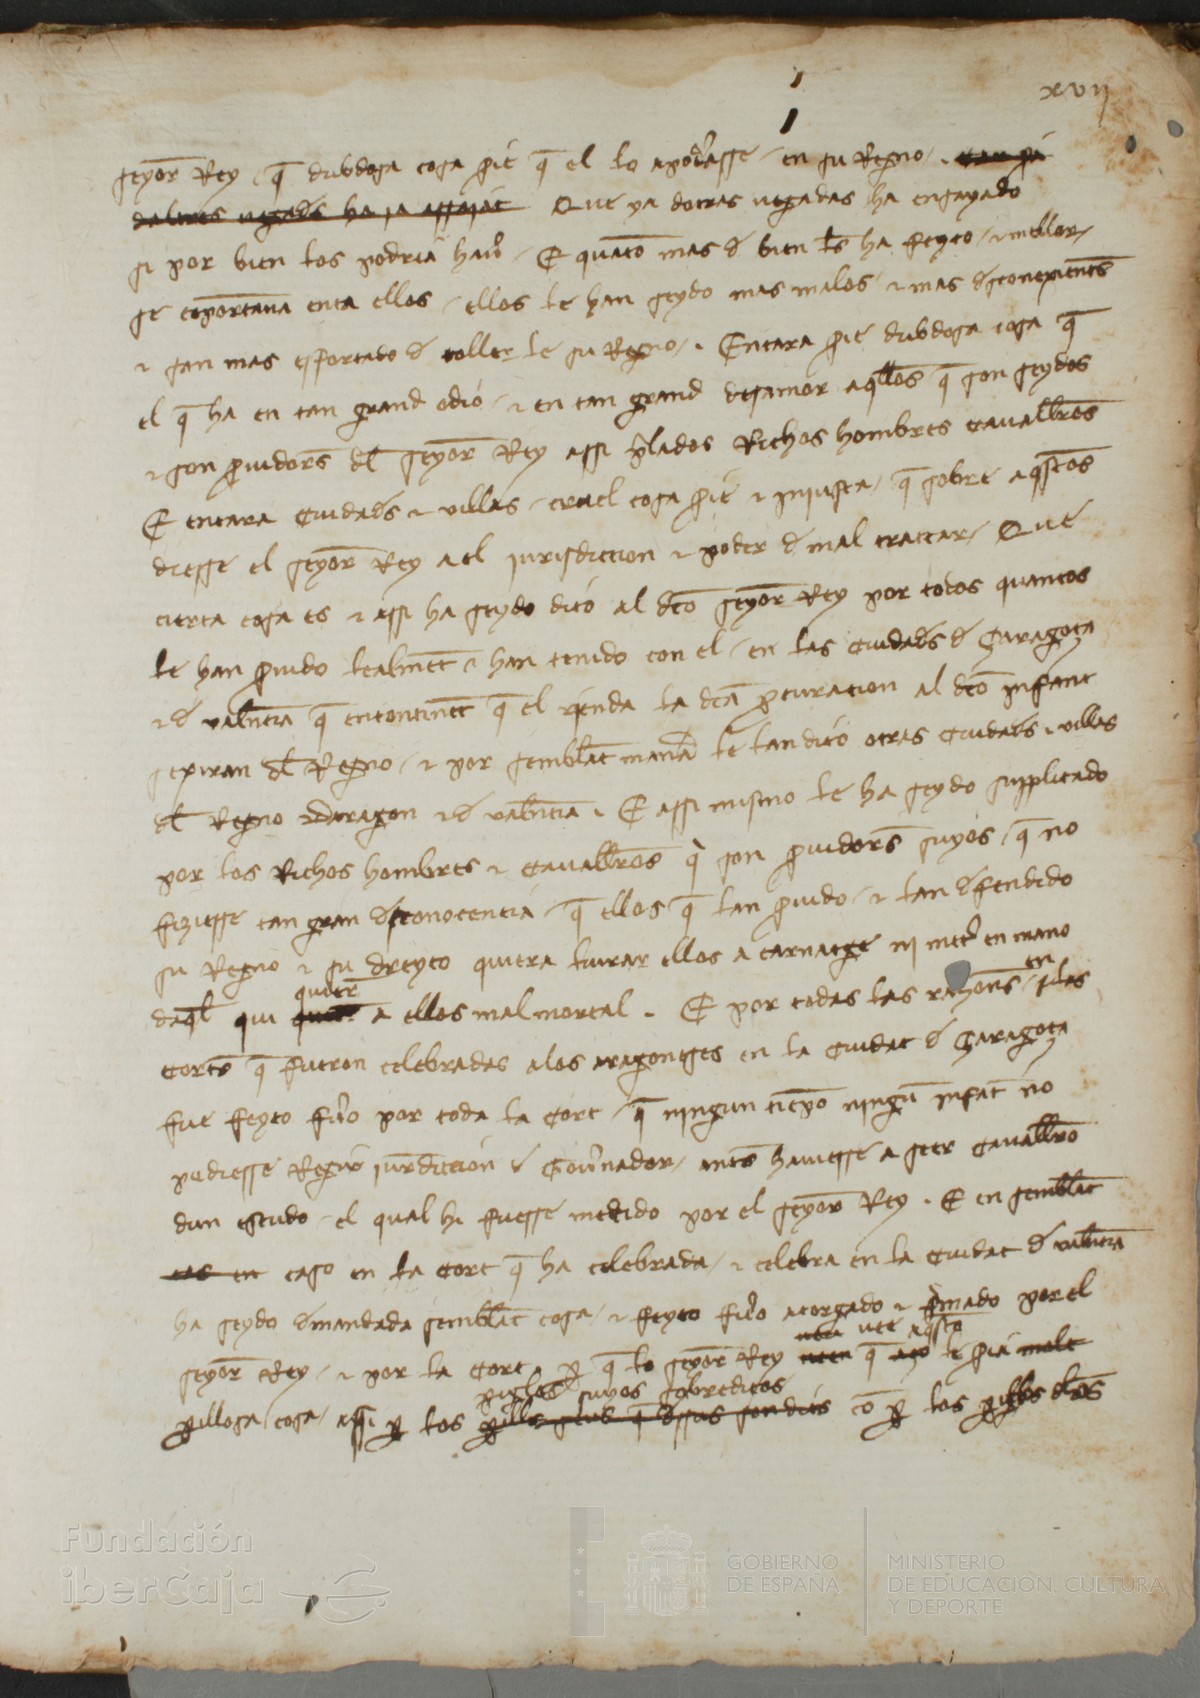 xvij
seyor Rey, q̄ dubdosa cosa serie q̄ el lo apoderasse en su Regno. car ja
daltres vegades ha ja assajat Que ya dotras vegadas ha ensayado
si por bien los podria hauer. E quāto mas de bien les ha feyto, ⁊ mellor
se comportaua enta ellos, ellos le han seydo mas malos ⁊ mas desconexientes
⁊ san mas esforçado de toller le su Regno. Encara serie dubdosa cosa q̄
el q̄ ha en tan grand odio, ⁊ en tan grand desamor aq̄llos q̄ son seydos
⁊ son seruidores del seyor Rey assi perlados Richos hombres caualleros
E encara Ciudades ⁊ villas, cruel cosa serie ⁊ injusta, q̄ sobre aq̄stos
diesse el seyor Rey a el jurisdiccion ⁊ poder de mal tractar, Que
cierta cosa es ⁊ assi ha seydo dito al dito seyor Rey por todos quantos
le han seruido lealment e han tenido con el, en las Ciudades de Çaragoça
⁊ de valencia q̄ encontinent q̄ el renda la dita procuracion al dito Infant
sexiran del Regno, ⁊ por semblant manera le lan dito otras Ciudades ⁊ villas
del Regno Daragon ⁊ de valencia. E assi mismo le ha seydo supplicado
por los Richos hombres ⁊ Caualleros qi son seruidores suyos, q̄ no
fiziesse tan gran desconocencia, q̄ ellos q̄ lan seruido, ⁊ lan defendido
su Regno ⁊ su dreyto quiera liurar ellos a carnatge ni meter en mano
daq̄l qui quiere a ellos mal mortal. E por todas las razones, en jlas
Cortes q̄ fueron celebradas alos aragoneses en la Ciudat de Çaragoça
fue feyto fuero por toda la Cort, q̄ ningun tiempo ningū infant no
pudiesse Regir juridiccion de Gouernador, antes hauiesse a seer Cauallero
dun escudo, el qual hi fuesse metido por el seyor Rey. E en semblant
cas en caso en la Cort q̄ ha celebrada, ⁊ celebra en la Ciudat de valencia
ha seydo demandada semblant cosa, ⁊ feyto fuero atorgado ⁊ firmado por el
seyor Rey, ⁊ por la Cort, per q̄ lo seyor Rey vee q̄ aço aq̄sto le seria molt
perillosa cosa, assi per los periglos suyos sobreditos perills seus q̄ dessus son dits com per los periglos dels